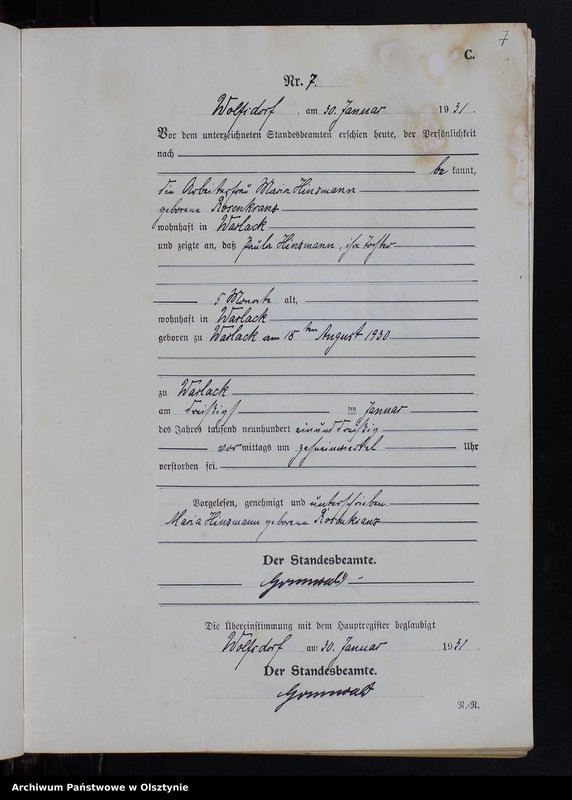 7
C.
Nr. 7.
Wolfsdorf, am 30. Januar 1931.
Vor dem unterzeichneten Standesbeamten erschien heute, der Persönlichkeit
nach
bekannt,
die Arbeiterfrau Maria Hinzmann
geborene Rosenkranz
wohnhaft in Warlack
und zeigte an, daß Paula Hinzmann, ihre Tochter
5 Monate alt,
wohnhaft in Warlack
geboren zu Warlack am 18ten August 1930
zu Warlack
am dreißigsten Januar
des Jahres tausend neunhundert einunddreißig
vormittags um zehneinviertel Uhr
verstorben sei.
Vorgelesen, genehmigt und unterschrieben
Maria Hinzmann geborene Rosenkranz
Der Standesbeamte.
Grunwald
Die Übereinstimmung mit dem Hauptregister beglaubigt
Wolfsdorf am 30. Januar 1931.
Der Standesbeamte.
Grunwald
N.-R.
Archiwum Państwowe w Olsztynie